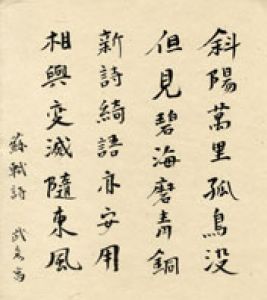 斜陽萬里孤鳥没
但見碧海磨青銅
新詩綺語亦安用
相與變滅隨東風
蘇軾詩